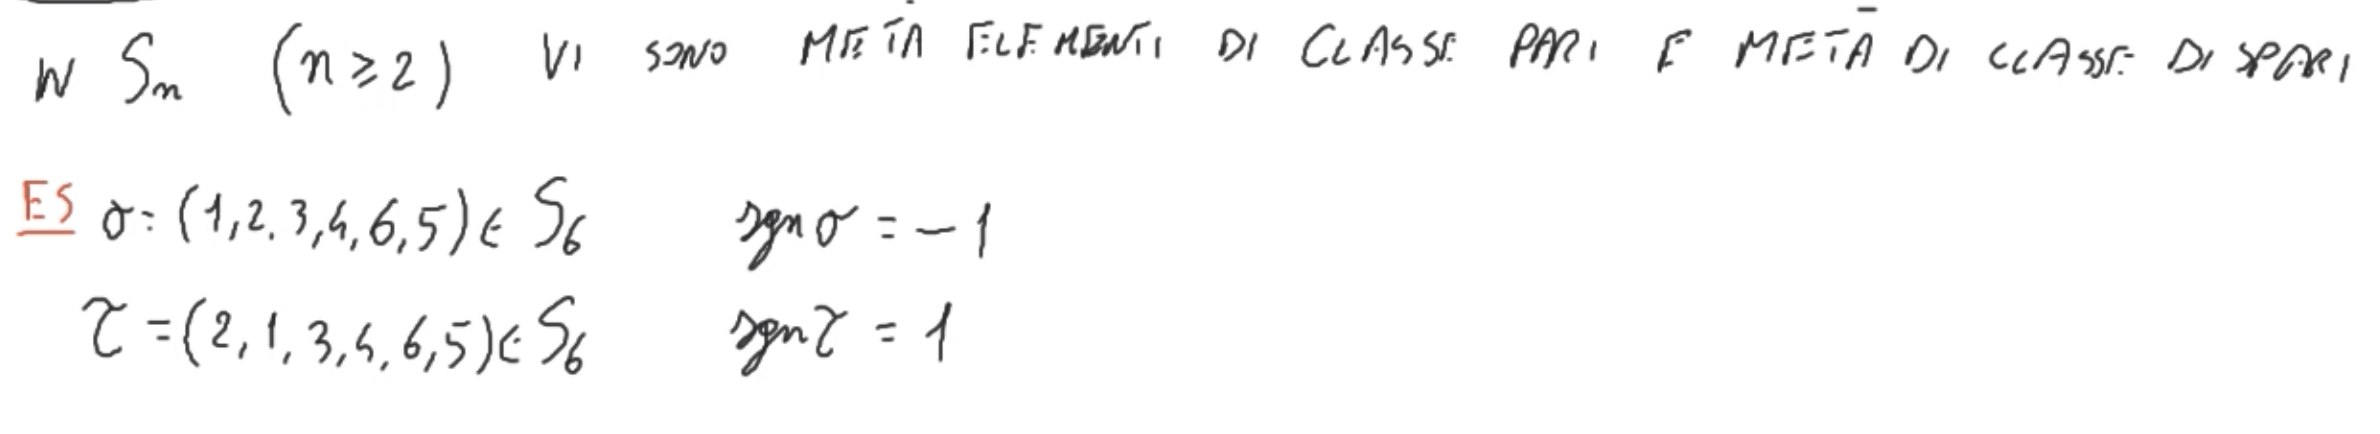 IN Sn (n ≥ 2) VI SONO METÀ ELEMENTI DI CLASSE PARI E METÀ DI CLASSE DISPARI
ES σ = (1,2,3,4,6,5) ∈ S6 sgn σ = -1
τ = (2,1,3,4,6,5) ∈ S6 sgn τ = 1